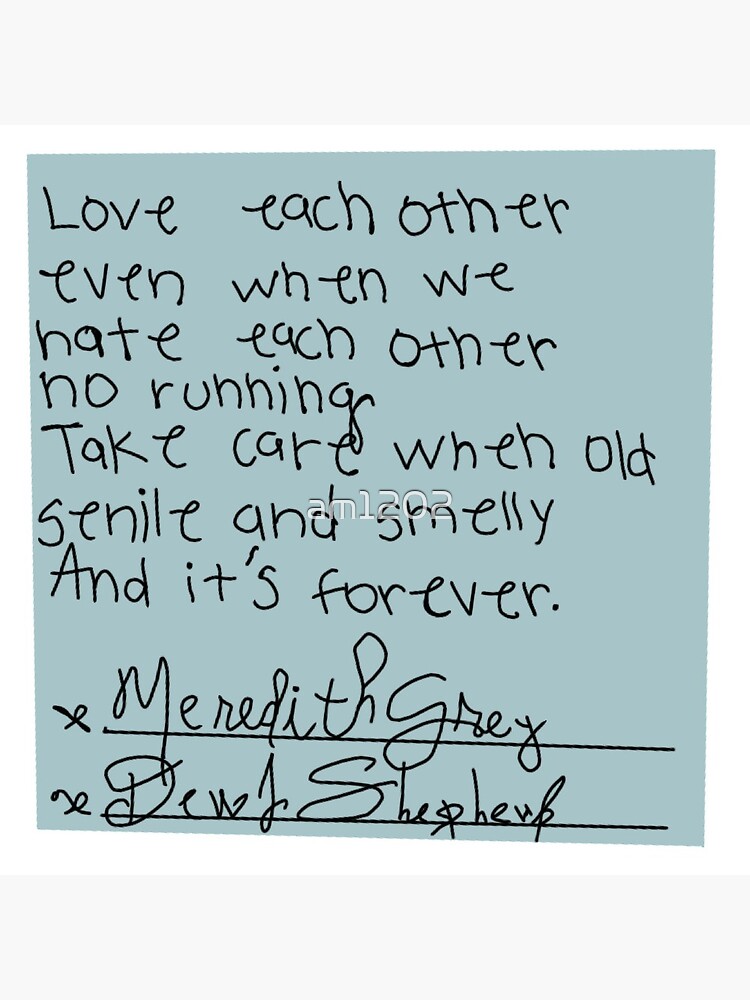 Love each other
even when we
hate each other
no running
Take care when old
senile and smelly
am1202
And it's forever.
x Meredith Grey
x Shepherd